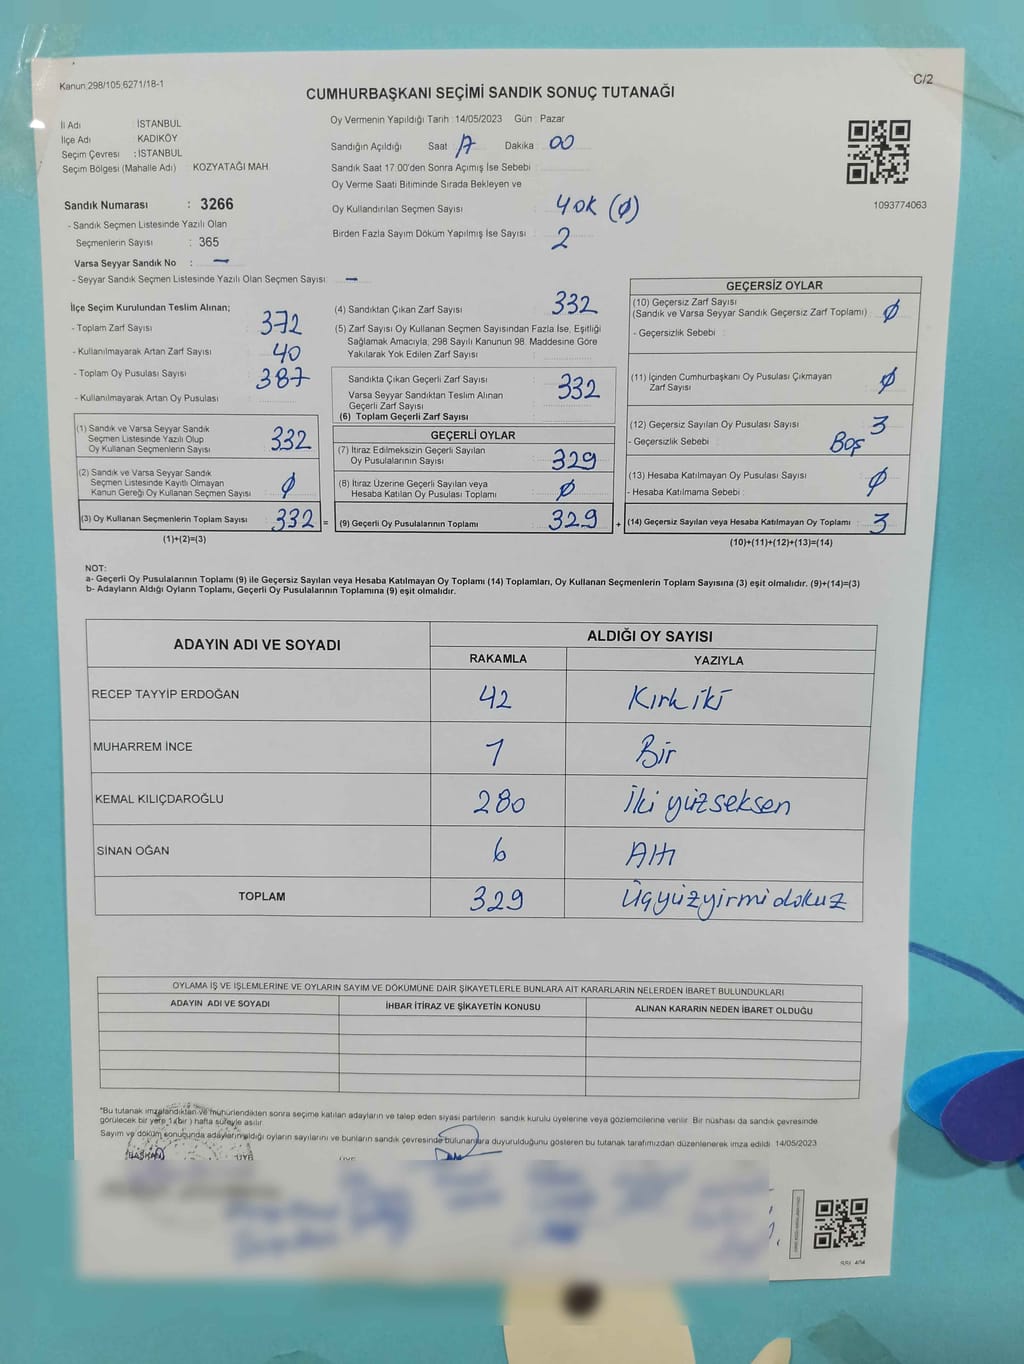 Kanun:298/105,6271/18-1
C/2
CUMHURBAŞKANI SEÇİMİ SANDIK SONUÇ TUTANAĞI
İl Adı : İSTANBUL
İlçe Adı : KADIKÖY
Seçim Çevresi : İSTANBUL
Seçim Bölgesi (Mahalle Adı) KOZYATAĞI MAH.
Sandık Numarası : 3266
- Sandık Seçmen Listesinde Yazılı Olan
Seçmenlerin Sayısı : 365
Varsa Seyyar Sandık No : —
- Seyyar Sandık Seçmen Listesinde Yazılı Olan Seçmen Sayısı : —
Oy Vermenin Yapıldığı Tarih : 14/05/2023 Gün : Pazar
Sandığın Açıldığı Saat : 17 Dakika : 00
Sandık Saat 17:00'den Sonra Açımış İse Sebebi :
Oy Verme Saati Bitiminde Sırada Bekleyen ve
Oy Kullandırılan Seçmen Sayısı : YOK (0)
Birden Fazla Sayım Döküm Yapılmış İse Sayısı : 2
1093774063
İlçe Seçim Kurulundan Teslim Alınan;
- Toplam Zarf Sayısı : 372
- Kullanılmayarak Artan Zarf Sayısı : 40
- Toplam Oy Pusulası Sayısı : 387
- Kullanılmayarak Artan Oy Pusulası :
(1) Sandık ve Varsa Seyyar Sandık
Seçmen Listesinde Yazılı Olup
Oy Kullanan Seçmenlerin Sayısı : 332
(2) Sandık ve Varsa Seyyar Sandık
Seçmen Listesinde Kayıtlı Olmayan
Kanun Gereği Oy Kullanan Seçmen Sayısı : 0
(3) Oy Kullanan Seçmenlerin Toplam Sayısı : 332 =
(1)+(2)=(3)
(4) Sandıktan Çıkan Zarf Sayısı : 332
(5) Zarf Sayısı Oy Kullanan Seçmen Sayısından Fazla İse, Eşitliği
Sağlamak Amacıyla, 298 Sayılı Kanunun 98. Maddesine Göre
Yakılarak Yok Edilen Zarf Sayısı :
Sandıkta Çıkan Geçerli Zarf Sayısı : 332
Varsa Seyyar Sandıktan Teslim Alınan
Geçerli Zarf Sayısı :
(6) Toplam Geçerli Zarf Sayısı :
GEÇERLİ OYLAR
(7) İtiraz Edilmeksizin Geçerli Sayılan
Oy Pusulalarının Sayısı : 329
(8) İtiraz Üzerine Geçerli Sayılan veya
Hesaba Katılan Oy Pusulası Toplamı : 0
(9) Geçerli Oy Pusulalarının Toplamı : 329 +
GEÇERSİZ OYLAR
(10) Geçersiz Zarf Sayısı
(Sandık ve Varsa Seyyar Sandık Geçersiz Zarf Toplamı) : 0
- Geçersizlik Sebebi :
(11) İçinden Cumhurbaşkanı Oy Pusulası Çıkmayan
Zarf Sayısı : 0
(12) Geçersiz Sayılan Oy Pusulası Sayısı : 3
- Geçersizlik Sebebi : Boş
(13) Hesaba Katılmayan Oy Pusulası Sayısı : 0
- Hesaba Katılmama Sebebi :
(14) Geçersiz Sayılan veya Hesaba Katılmayan Oy Toplamı : 3
(10)+(11)+(12)+(13)=(14)
NOT:
a- Geçerli Oy Pusulalarının Toplamı (9) ile Geçersiz Sayılan veya Hesaba Katılmayan Oy Toplamı (14) Toplamları, Oy Kullanan Seçmenlerin Toplam Sayısına (3) eşit olmalıdır. (9)+(14)=(3)
b- Adayların Aldığı Oyların Toplamı, Geçerli Oy Pusulalarının Toplamına (9) eşit olmalıdır.
ADAYIN ADI VE SOYADI ALDIĞI OY SAYISI
RAKAMLA YAZIYLA
RECEP TAYYİP ERDOĞAN 42 Kırk iki
MUHARREM İNCE 1 Bir
KEMAL KILIÇDAROĞLU 280 İki yüz seksen
SİNAN OĞAN 6 Altı
TOPLAM 329 Üçyüzyirmi dokuz
OYLAMA İŞ VE İŞLEMLERİNE VE OYLARIN SAYIM VE DÖKÜMÜNE DAİR ŞİKAYETLERLE BUNLARA AİT KARARLARIN NELERDEN İBARET BULUNDUKLARI
ADAYIN ADI VE SOYADI İHBAR İTİRAZ VE ŞİKAYETİN KONUSU ALINAN KARARIN NEDEN İBARET OLDUĞU
*Bu tutanak imzalandıktan ve mühürlendikten sonra seçime katılan adayların ve talep eden siyasi partilerin sandık kurulu üyelerine veya gözlemcilerine verilir. Bir nüshası da sandık çevresinde
görülecek bir yere 1 (bir) hafta süreyle asılır.
Sayım ve döküm sonucunda adayların aldığı oyların sayılarını ve bunların sandık çevresinde bulunanlara duyurulduğunu gösteren bu tutanak tarafımızdan düzenlenerek imza edildi. 14/05/2023
BAŞKAN ÜYE ÜYE